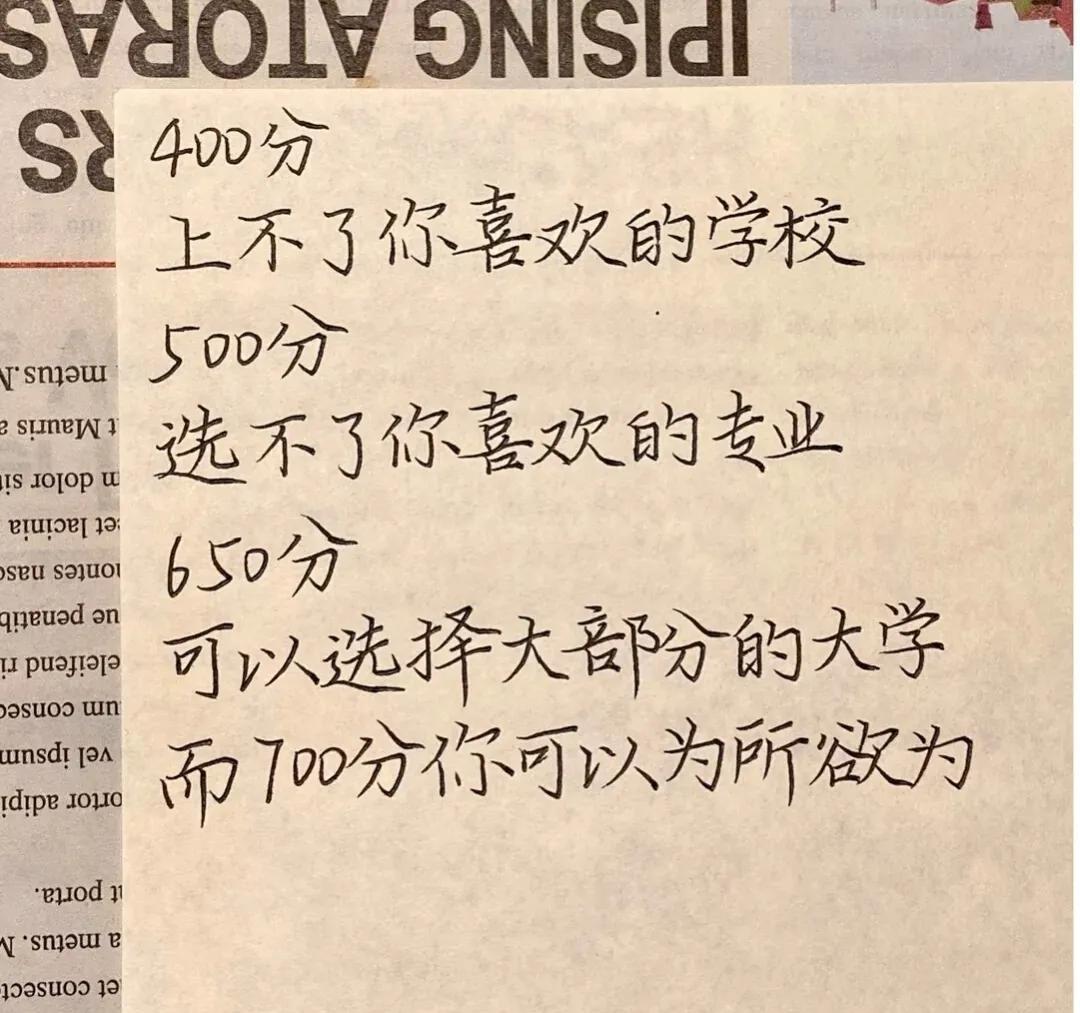 IPISING ATORAS
RS
400分
上不了你喜欢的学校
500分
选不了你喜欢的专业
650分
可以选择大部分的大学
而700分你可以为所欲为
metus.
t Mauris a
m dolor sit
et lacinia
montes nasc
ue penatib
eleifend ri
um consec
vel ipsum
ortor adipi
t porta.
a metus. M
et consect